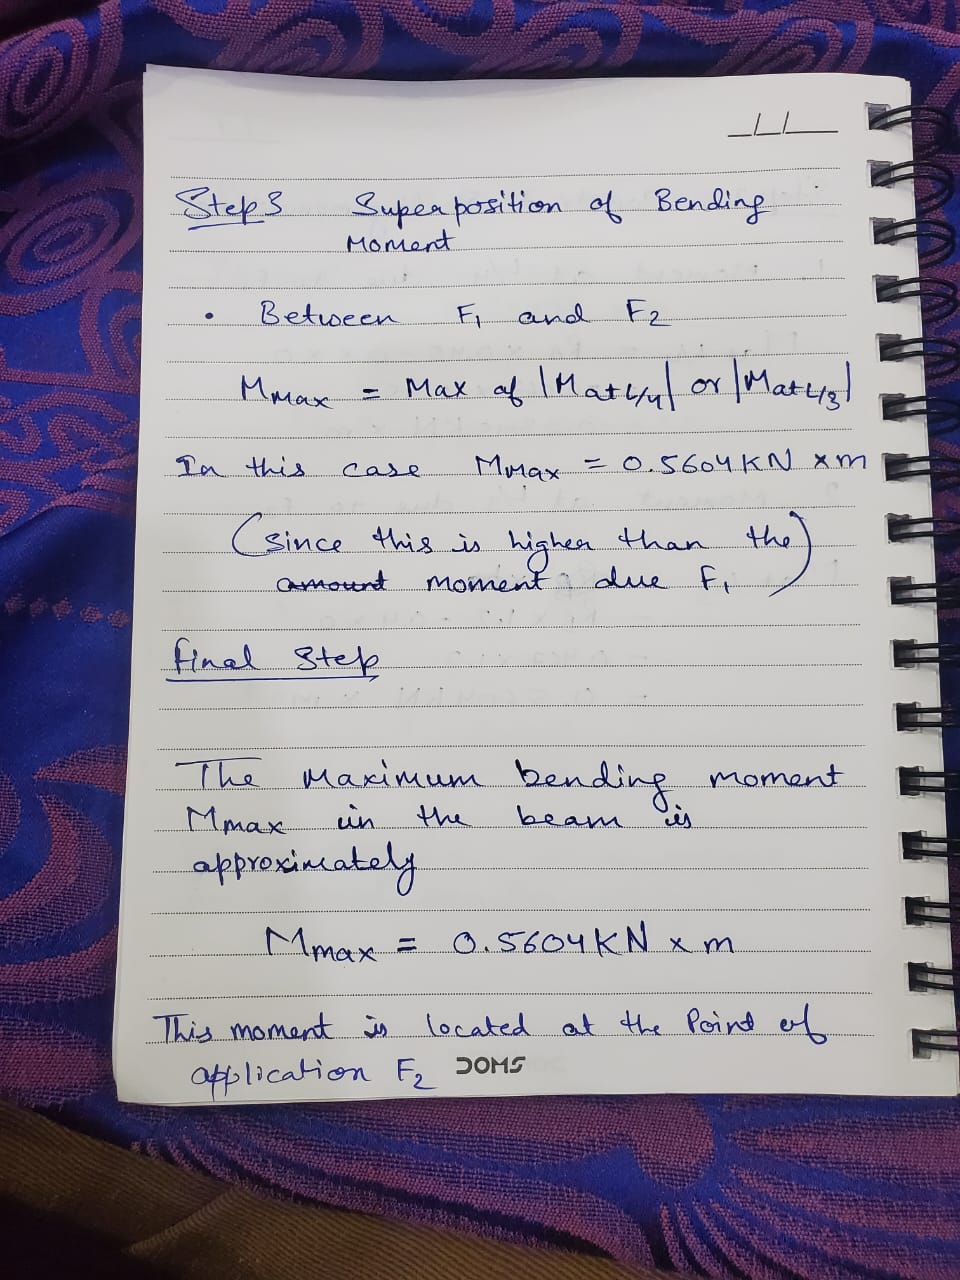 Step 3 Superposition of Bending
Moment
• Between F₁ and F₂
Mmax = Max of |M at L/4| or |M at L/3|
In this case Mmax = 0.5604 KN x m
(since this is higher than the
amount moment due F₁)
final Step
The Maximum bending moment
Mmax in the beam is
approximately
Mmax = 0.5604 KN x m
This moment is located at the Point of
application F₂
DOMS